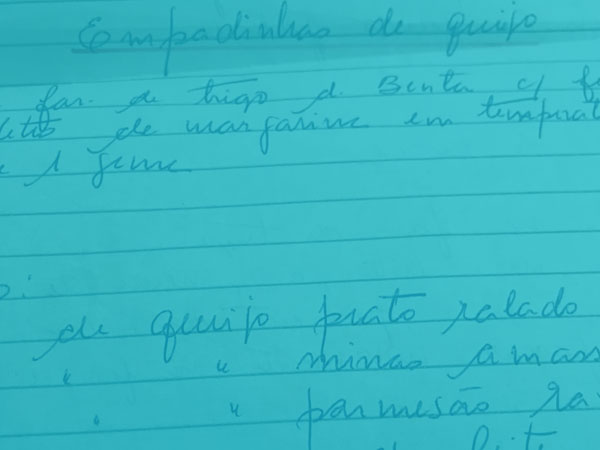 Empadinhas de queijo
far. de trigo d. Benta c/ f
de margarina em temperat
e 1 geme
o:
de queijo prato ralado
" " minas amass
" " parmesão ra
de leite